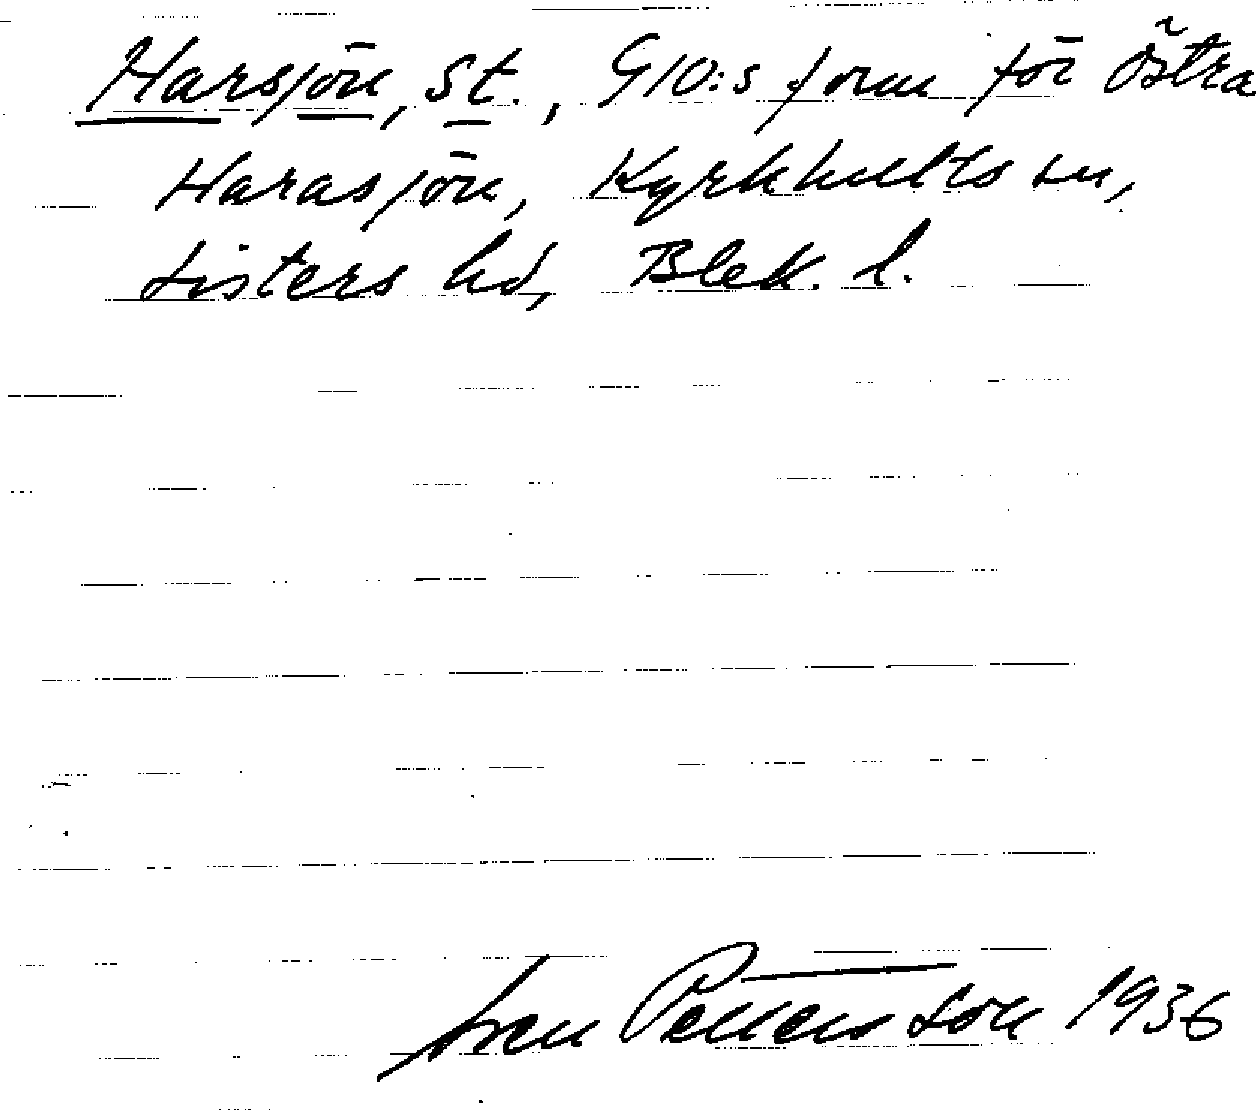 Harsjön, St., G10:s form för Östra
Harasjön, Kyrkhults sn,
Listers hd, Blek. l.
Sven Pettersson 1936